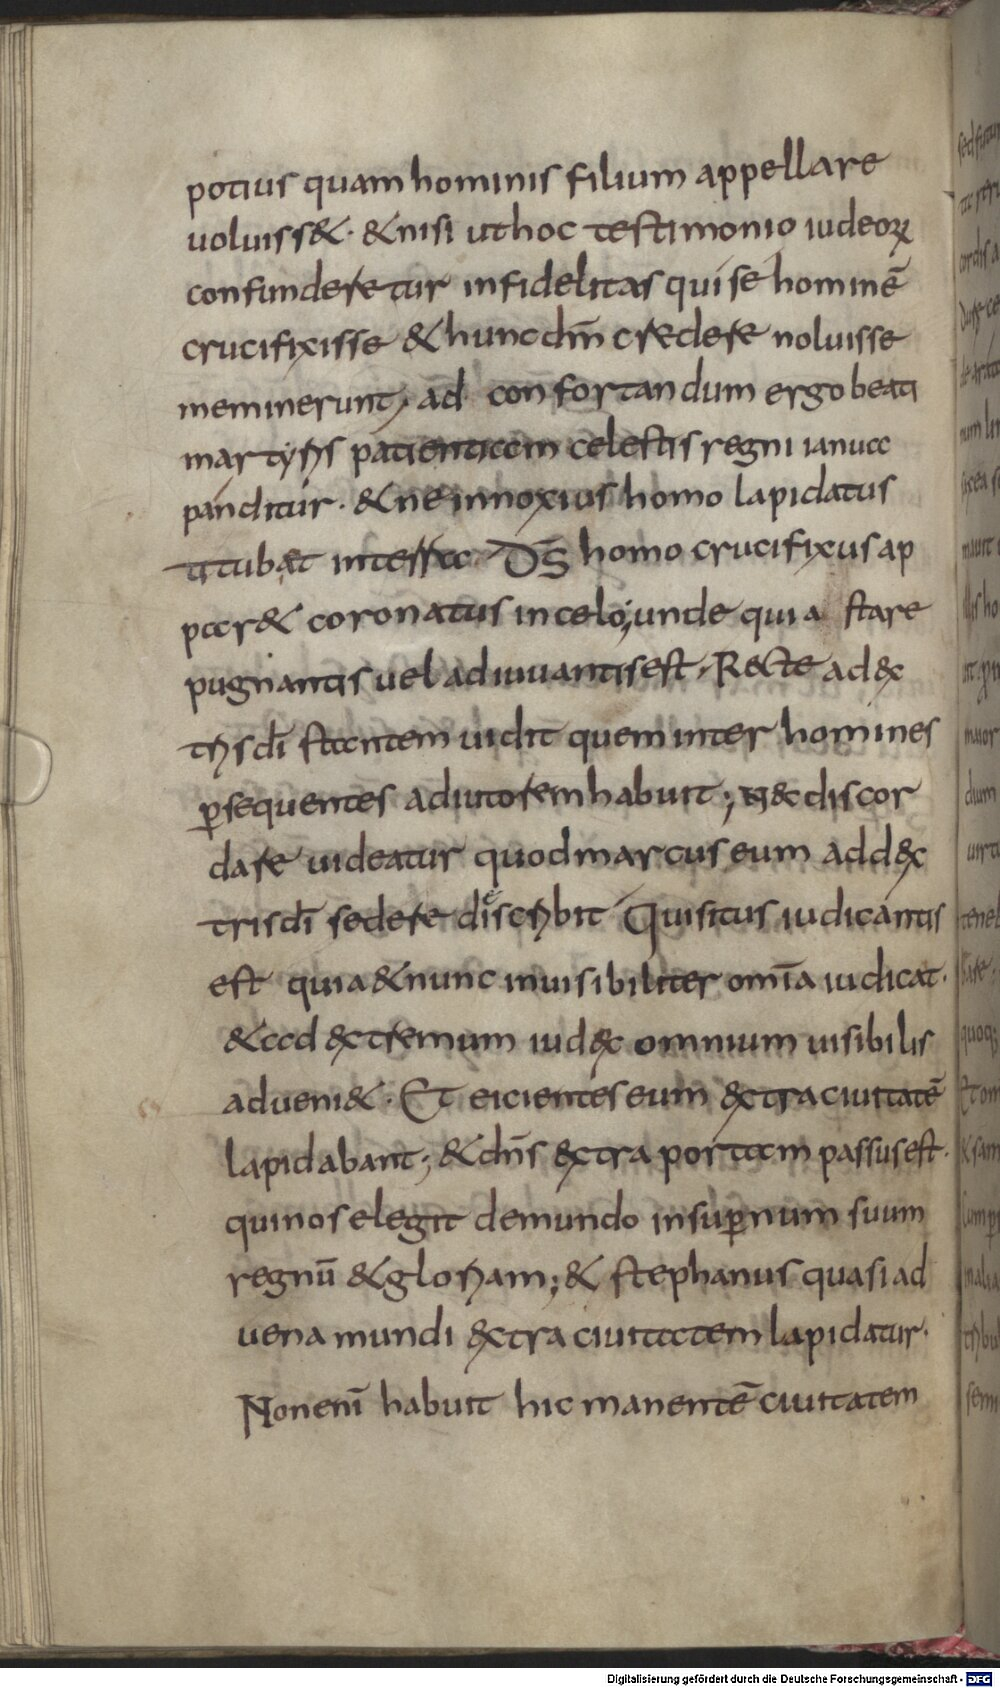 potius quam hominis filium appellare
uoluiss&. & nisi ut hoc testimonio iudeoꝝ
confunderetur infidelitas qui se hominē
crucifixisse & hunc dm̄ credere noluisse
meminerunt, ad confortandum ergo beati
martyris patientiam celestis regni ianua
panditur. & ne innoxius homo lapidatus
titubæt in terra D̄S homo crucifixus ap
par& coronatus in celo; unde quia stare
pugnantis uel adiuuantis est. Recte ad dex
tris dī stantem uidit quem inter homines
ꝑsequentes adiutorem habuit; N& discor
dare uideatur quod marcus eum ad dex
tris dī sedere discribit Qui situs iudicantis
est quia & nunc inuisibiliter omīa iudicat.
& ad extremum iudex omnium uisibilis
adueni&. Et eicientes eum extra ciuitatē
lapidabant; & dn̄s extra portam passus est.
qui nos elegit de mundo in suꝑnum suum
regnū & gloriam; & stephanus quasi ad
uena mundi extra ciuitatem lapidatur.
Non enī habuit hic manentē ciuitatem
Digitalisierung gefördert durch die Deutsche Forschungsgemeinschaft - DFG